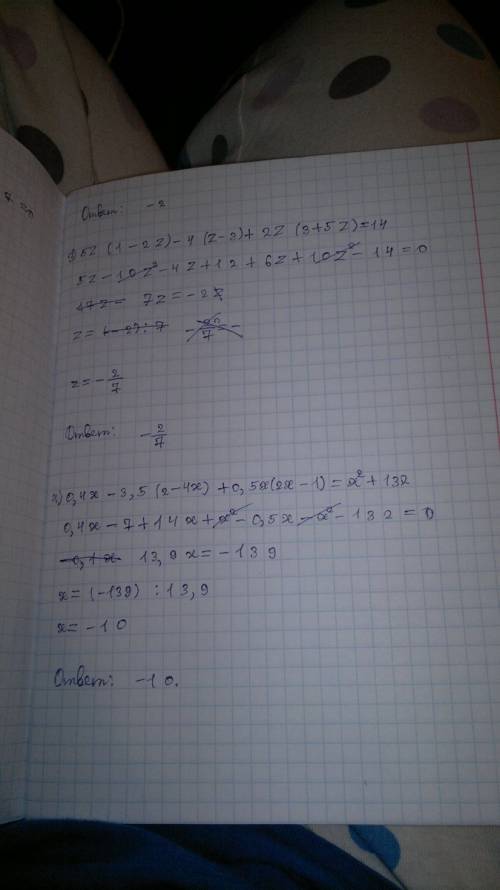 Ответ: -2
5z (1-2z)-4 (z-3)+2z (3+5z)=14
5z-10z²-4z+12+6z+10z²-14=0
7z=-2
z=
z=-2/7
Ответ: -2/7
0,4x-3,5(2-4x)+0,5x(2x-1)=x²+132
0,4x-7+14x+x²-0,5x-x²-132=0
13,9x=-139
x=(-139):13,9
x=-10
Ответ: -10.